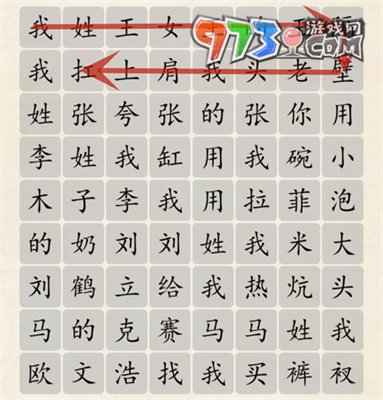 973游戏网
我姓王女士
我扛上肩我头老壁
姓张夸张的张你用
李姓我缸用我碗小
木子李我用拉菲泡
的奶刘刘姓我米大
刘鹤立给我热炕头
马的克赛马马姓我
欧文浩找我买裤衩